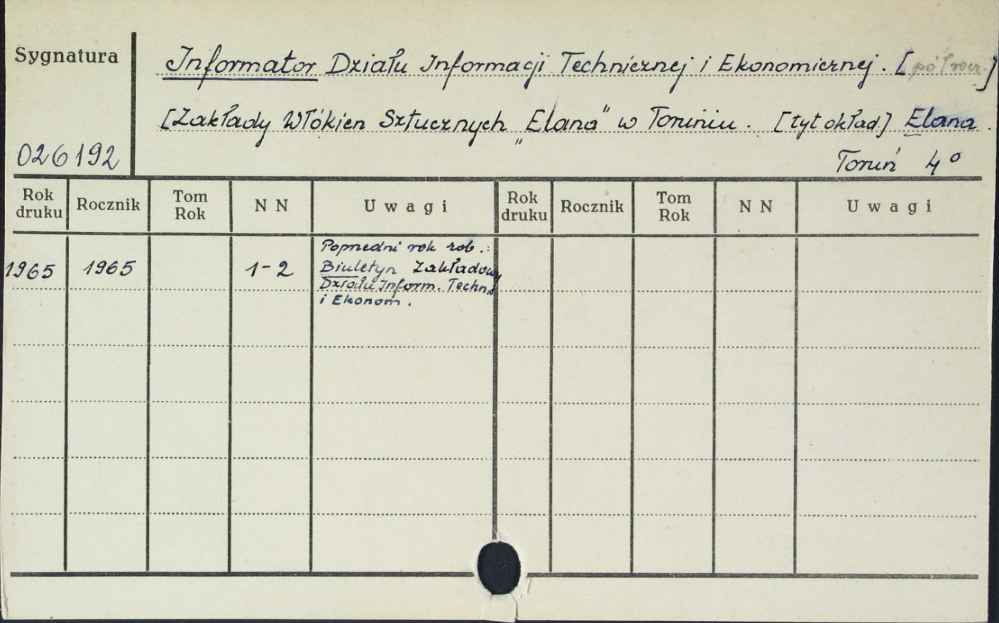 Sygnatura
Informator Działu Informacji Technicznej i Ekonomicznej. [półrocz.]
[Zakłady Włókien Sztucznych „Elana" w Toruniu. [tyt okład] Elana.
026192
Toruń 4°
Rok druku Rocznik Tom Rok N N Uwagi Rok druku Rocznik Tom Rok N N Uwagi
1965 1965 1-2
Poprzedni rok zob.:
Biuletyn Zakładowy
Działu Inform. Techn.
i Ekonom.